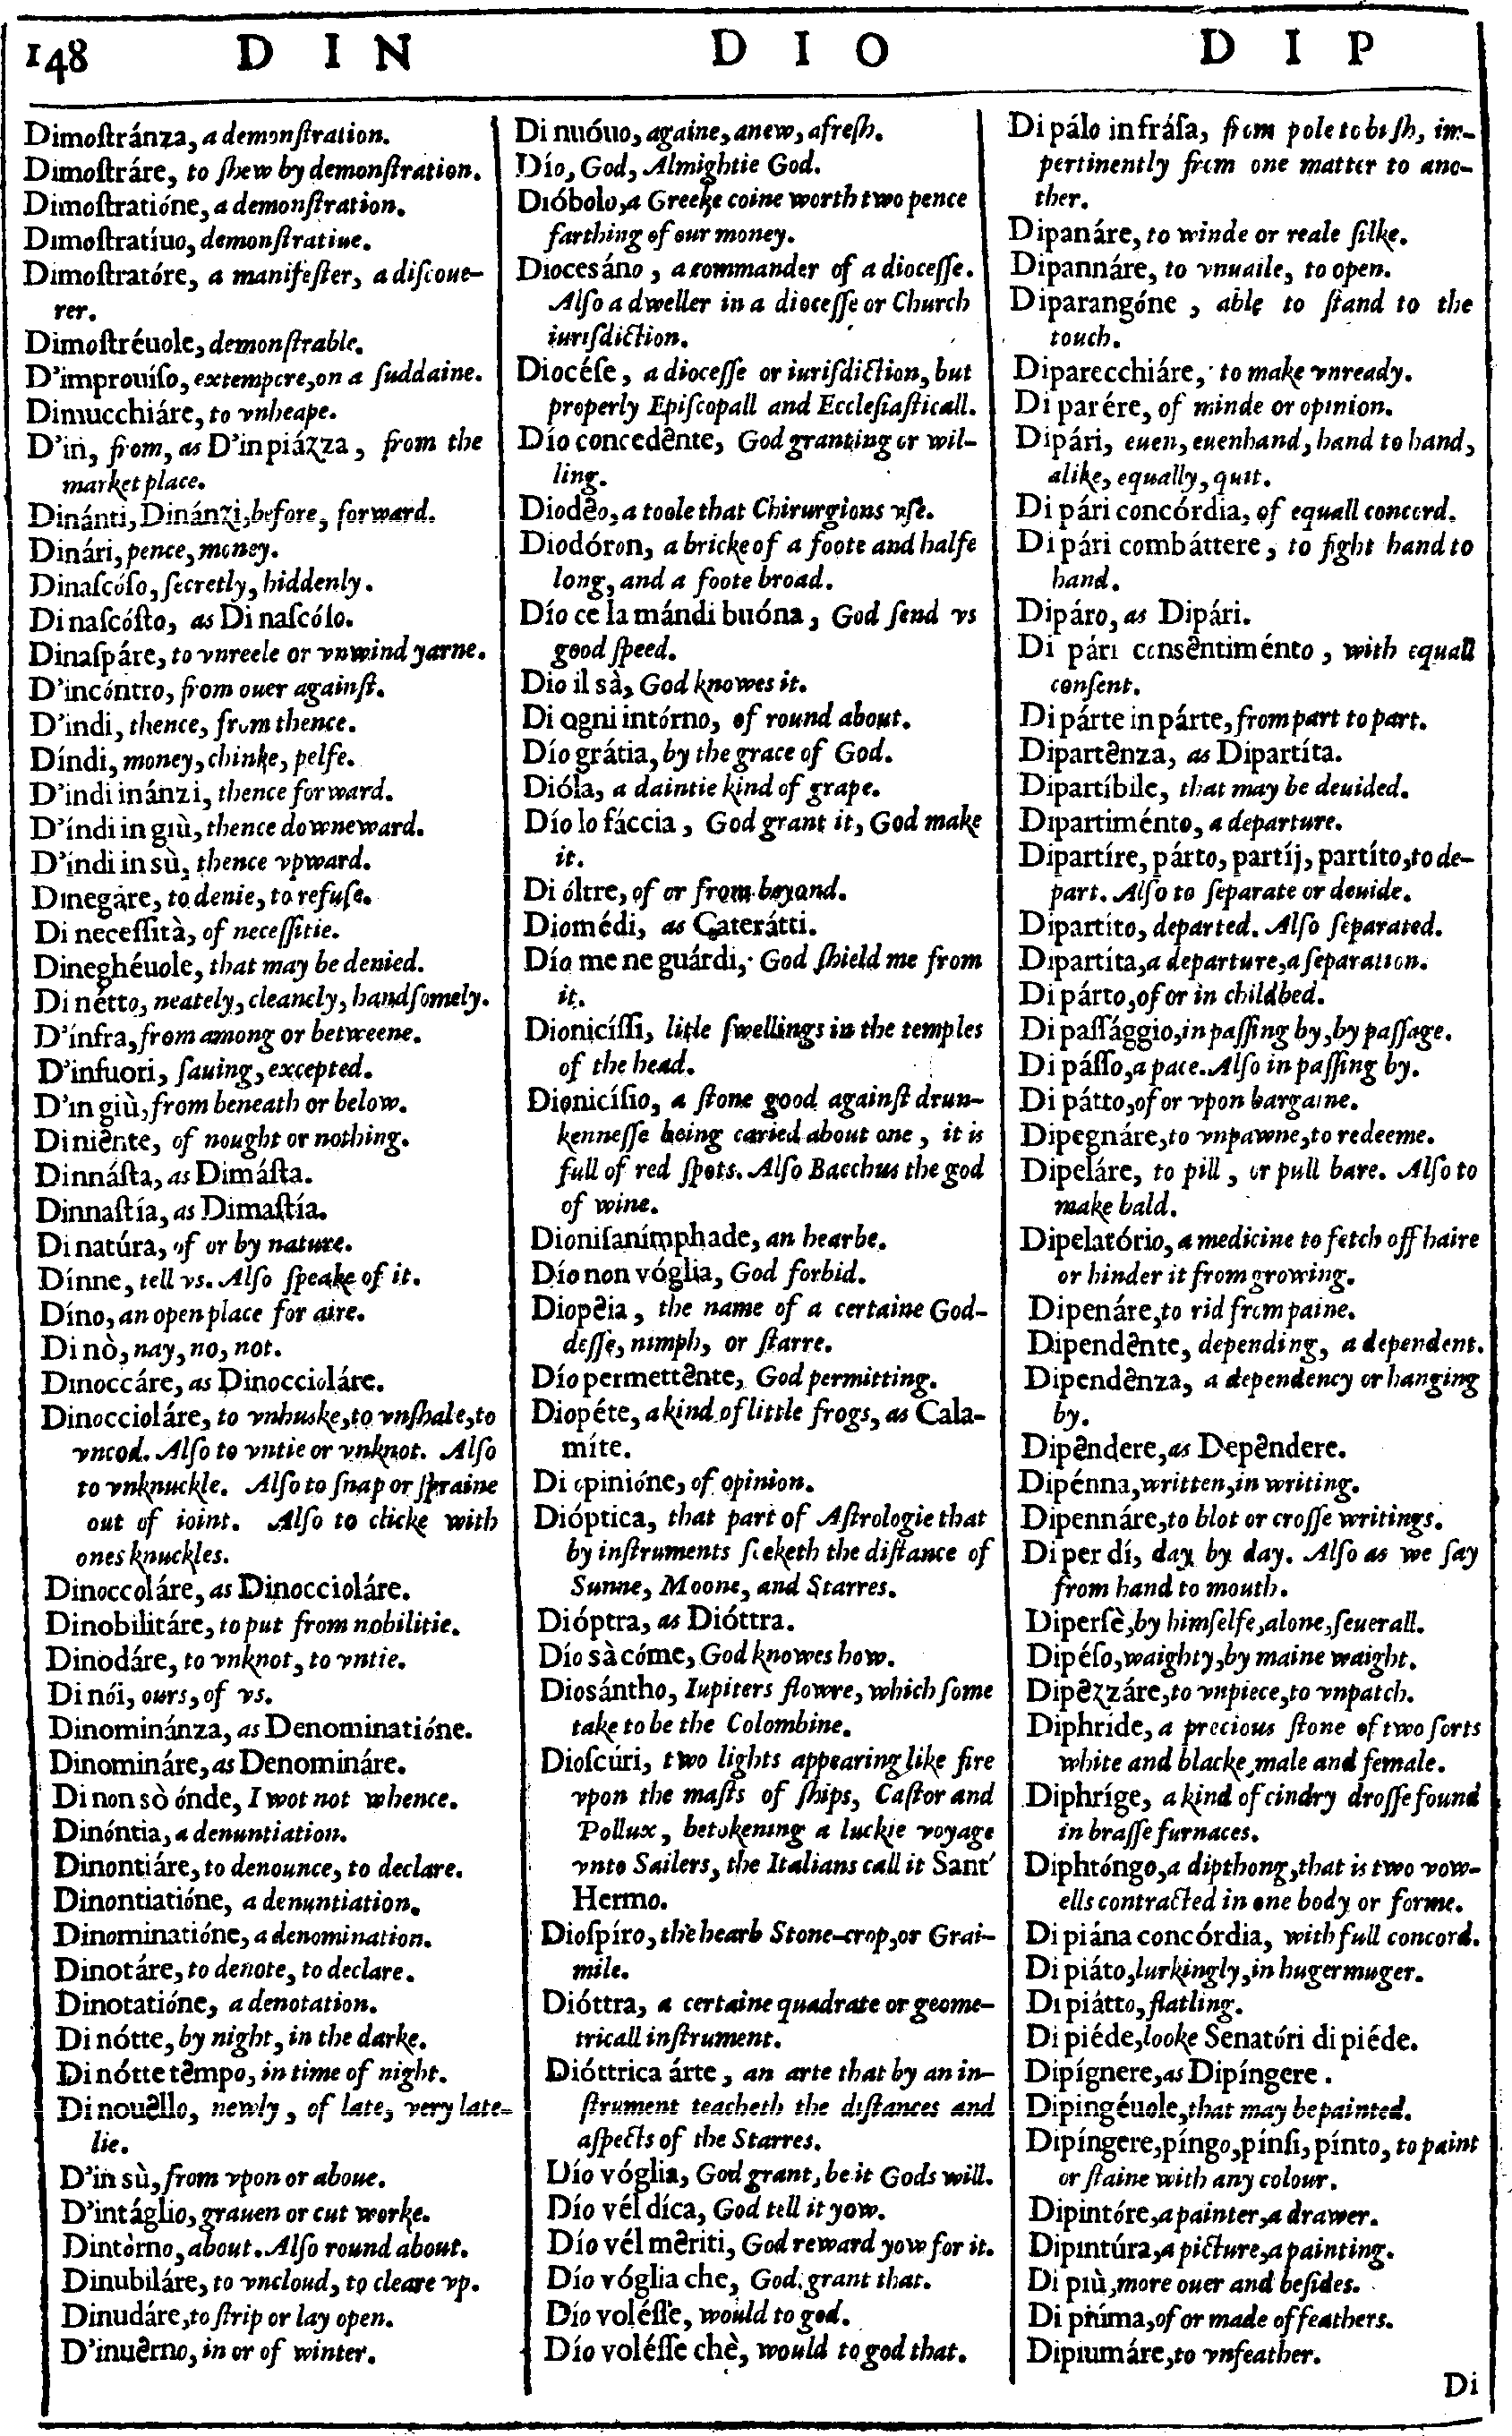 148 DIN DIO DIP
Dimoſtránza, a demonſtration.
Dimoſtráre, to ſhew by demonſtration.
Dimoſtratióne, a demonſtration.
Dimoſtratíuo, demonſtratiue.
Dimoſtratóre, a manifeſter, a diſcoue-
rer.
Dimoſtréuole, demonſtrable.
D'improuíſo, extempore, on a ſuddaine.
Dimucchiáre, to vnheape.
D'in, from, as D'in piázza, from the
market place.
Dinánti, Dinánzi, before, forward.
Dinári, pence, money.
Dinaſcóſo, ſecretly, hiddenly.
Di naſcóſto, as Di naſcóſo.
Dinaſpáre, to vnreele or vnwind yarne.
D'incóntro, from ouer againſt.
D'indi, thence, from thence.
Díndi, money, chinke, pelfe.
D'indi inánzi, thence forward.
D'índi in giù, thence downeward.
D'índi in sù, thence vpward.
Dinegáre, to denie, to refuſe.
Di neceſſità, of neceſſitie.
Dineghéuole, that may be denied.
Di nétto, neately, cleanely, handſomely.
D'ínfra, from among or betweene.
D'infuori, ſauing, excepted.
D'in giù, from beneath or below.
Di niênte, of nought or nothing.
Dinnáſta, as Dimáſta.
Dinnaſtía, as Dimaſtía.
Di natúra, of or by nature.
Dínne, tell vs. Alſo ſpeake of it.
Díno, an open place for aire.
Di nò, nay, no, not.
Dinoccáre, as Dinoccioláre.
Dinoccioláre, to vnhuske, to vnſhale, to
vncod. Alſo to vntie or vnknot. Alſo
to vnknuckle. Alſo to ſnap or ſpraine
out of ioint. Alſo to clicke with
ones knuckles.
Dinoccoláre, as Dinoccioláre.
Dinobilitáre, to put from nobilitie.
Dinodáre, to vnknot, to vntie.
Di nói, ours, of vs.
Dinominánza, as Denominatióne.
Dinomináre, as Denomináre.
Di non sò ónde, I wot not whence.
Dinóntia, a denuntiation.
Dinontiáre, to denounce, to declare.
Dinontiatióne, a denuntiation.
Dinominatióne, a denomination.
Dinotáre, to denote, to declare.
Dinotatióne, a denotation.
Di nótte, by night, in the darke.
Di nótte têmpo, in time of night.
Di nouêllo, newly, of late, very late-
lie.
D'in sù, from vpon or aboue.
D'intáglio, grauen or cut worke.
Dintòrno, about. Alſo round about.
Dinubiláre, to vncloud, to cleare vp.
Dinudáre, to ſtrip or lay open.
D'inuêrno, in or of winter.
Di nuóuo, againe, anew, afreſh.
Dío, God, Almightie God.
Dióbolo, a Greeke coine worth two pence
farthing of our money.
Diocesáno, a commander of a dioceſſe.
Alſo a dweller in a dioceſſe or Church
iuriſdiction.
Diocéſe, a dioceſſe or iuriſdiction, but
properly Epiſcopall and Eccleſiaſticall.
Dío concedênte, God granting or wil-
ling.
Diodêo, a toole that Chirurgions vſe.
Diodóron, a bricke of a foote and halfe
long, and a foote broad.
Dío ce la mándi buóna, God ſend vs
good ſpeed.
Dio il sà, God knowes it.
Di ogni intórno, of round about.
Dío grátia, by the grace of God.
Dióla, a daintie kind of grape.
Dío lo fáccia, God grant it, God make
it.
Di óltre, of or from beyond.
Diomédi, as Caterátti.
Dío me ne guárdi, God ſhield me from
it.
Dionicíſſi, litle ſwellings in the temples
of the head.
Dionicíſio, a ſtone good againſt drun-
kenneſſe being caried about one, it is
full of red ſpots. Alſo Bacchus the god
of wine.
Dioniſanímphade, an hearbe.
Dío non vóglia, God forbid.
Diopêia, the name of a certaine God-
deſſe, nimph, or ſtarre.
Dío permettênte, God permitting.
Diopéte, a kind of little frogs, as Cala-
míte.
Di opinióne, of opinion.
Dióptica, that part of Aſtrologie that
by inſtruments ſeeketh the diſtance of
Sunne, Moone, and Starres.
Dióptra, as Dióttra.
Dío sà cóme, God knowes how.
Diosántho, Iupiters flowre, which ſome
take to be the Colombine.
Dioſcúri, two lights appearing like fire
vpon the maſts of ſhips, Caſtor and
Pollux, betokening a luckie voyage
vnto Sailers, the Italians call it Sant'
Hermo.
Dioſpíro, the hearb Stone-crop, or Grai-
mile.
Dióttra, a certaine quadrate or geome-
tricall inſtrument.
Dióttrica árte, an arte that by an in-
ſtrument teacheth the diſtances and
aſpects of the Starres.
Dío vóglia, God grant, be it Gods will.
Dío vél díca, God tell it yow.
Dío vél mêriti, God reward yow for it.
Dío vóglia che, God grant that.
Dío voléſſe, would to god.
Dío voléſſe chè, would to god that.
Di pálo in fráſa, from pole to buſh, im-
pertinently from one matter to ano-
ther.
Dipanáre, to winde or reale ſilke.
Dipannáre, to vnuaile, to open.
Diparangóne, able to ſtand to the
touch.
Diparecchiáre, to make vnready.
Di parére, of minde or opinion.
Dipári, euen, euenhand, hand to hand,
alike, equally, quit.
Di pári concórdia, of equall concord.
Di pári combáttere, to fight hand to
hand.
Dipáro, as Dipári.
Di pári consêntiménto, with equall
conſent.
Di párte in párte, from part to part.
Dipartênza, as Dipartíta.
Dipartíbile, that may be deuided.
Dipartiménto, a departure.
Dipartíre, párto, partíj, partíto, to de-
part. Alſo to ſeparate or deuide.
Dipartíto, departed. Alſo ſeparated.
Dipartíta, a departure, a ſeparation.
Di párto, of or in childbed.
Di paſſággio, in paſſing by, by paſſage.
Di páſſo, a pace. Alſo in paſſing by.
Di pátto, of or vpon bargaine.
Dipegnáre, to vnpawne, to redeeme.
Dipeláre, to pill, or pull bare. Alſo to
make bald.
Dipelatório, a medicine to fetch off haire
or hinder it from growing.
Dipenáre, to rid from paine.
Dipendênte, depending, a dependent.
Dipendênza, a dependency or hanging
by.
Dipêndere, as Depêndere.
Dipénna, written, in writing.
Dipennáre, to blot or croſſe writings.
Di per dí, day by day. Alſo as we ſay
from hand to mouth.
Diperſè, by himſelfe, alone, ſeuerall.
Dipéſo, waighty, by maine waight.
Dipêzzáre, to vnpiece, to vnpatch.
Diphride, a precious ſtone of two ſorts
white and blacke, male and female.
Diphríge, a kind of cindry droſſe found
in braſſe furnaces.
Diphtóngo, a dipthong, that is two vow-
ells contracted in one body or forme.
Di piána concórdia, with full concord.
Di piáto, lurkingly, in hugermuger.
Di piátto, flatling.
Di piéde, looke Senatóri di piéde.
Dipígnere, as Dipíngere.
Dipingéuole, that may be painted.
Dipíngere, píngo, pínſi, pínto, to paint
or ſtaine with any colour.
Dipintóre, a painter, a drawer.
Dipintúra, a picture, a painting.
Di più, more ouer and beſides.
Di piúma, of or made of feathers.
Dipiumáre, to vnfeather.
Di